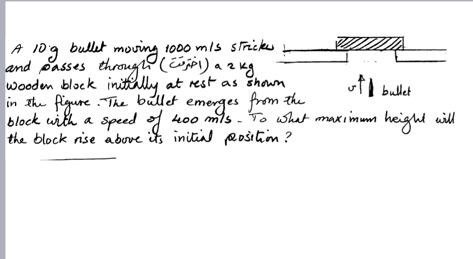 A 10g bullet moving 1000 m/s strickes
and passes through (اخترقت) a 2 kg
wooden block initially at rest as shown
in the figure. The bullet emerges from the
block with a speed of 400 m/s. To what maximum height will
the block rise above its initial position?
v bullet